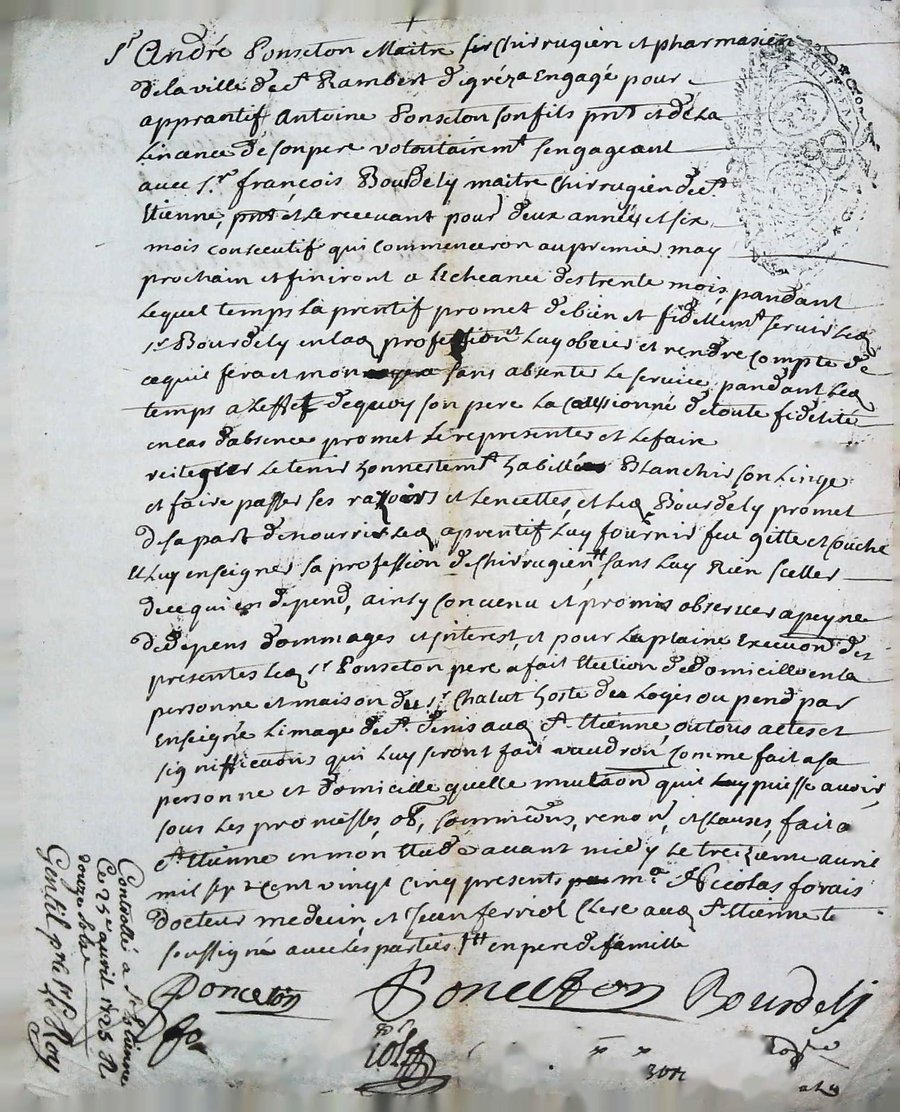 Sr André Ponseton Maitre chirrugien et pharmasien
de la ville de st Rambert de gré engagé pour
apprantif Antoine Ponseton son fils pnt et de la
licence de son pere volontairemt sengageant
avec sr françois Bourdely maitre chirrugien de st
Etienne, pnt et le recevant pour deux année et six
mois consecutif qui commenceron au premie may
prochain et finiront a lecheance des trente mois, pandant
lequel temps la prentif promet de bien et fidellemt servir led
sr Bourdely en lad profession luy obeir et rendre compte de
ce qui fera et sans absente le service pandant led
temps a leffet de quoy son pere la causionné de toute fidelité
en cas dabsence promet le representer et le fair
le tenir honnestemt habillé Blanchir son linge
et faire passer ses razoirs et lencettes, et led Bourdely promet
de sa part de nourrir led aprentif luy fournir feu gitte et couche
et luy enseigner sa profession de chirrugien sans luy rien sceller
de ce qui en depend, ainsy convenu et promis observer a peyne
de depens dommages et interest, et pour la plaine execuon des
presentes led sr Ponseton pere a fait Election de domicille en la
personne et maison du sr Chalut hoste du logis ou pend par
enseigne limage de st denis aud st Etienne, ou tous actes et
significaons qui luy seront fait vaudron comme fait a sa
personne et domicille quelle mutaon quil luy puisse avoir,
sous les promesses, ob, renon, et clauses, fait a
st Etienne en mon Etude avant midy le treizieme avril
mil sept cent vingt cinq presents mre Nicolas forais
docteur medecin et Jean ferriol clerc aud st Etienne
soussigné avec les parties en pere de famille
Ponceton Ponceton Bourdely
Controllé a st Etienne
ce 25e avril 1725 R
douze sols
Gentil pr le sr
le Roy